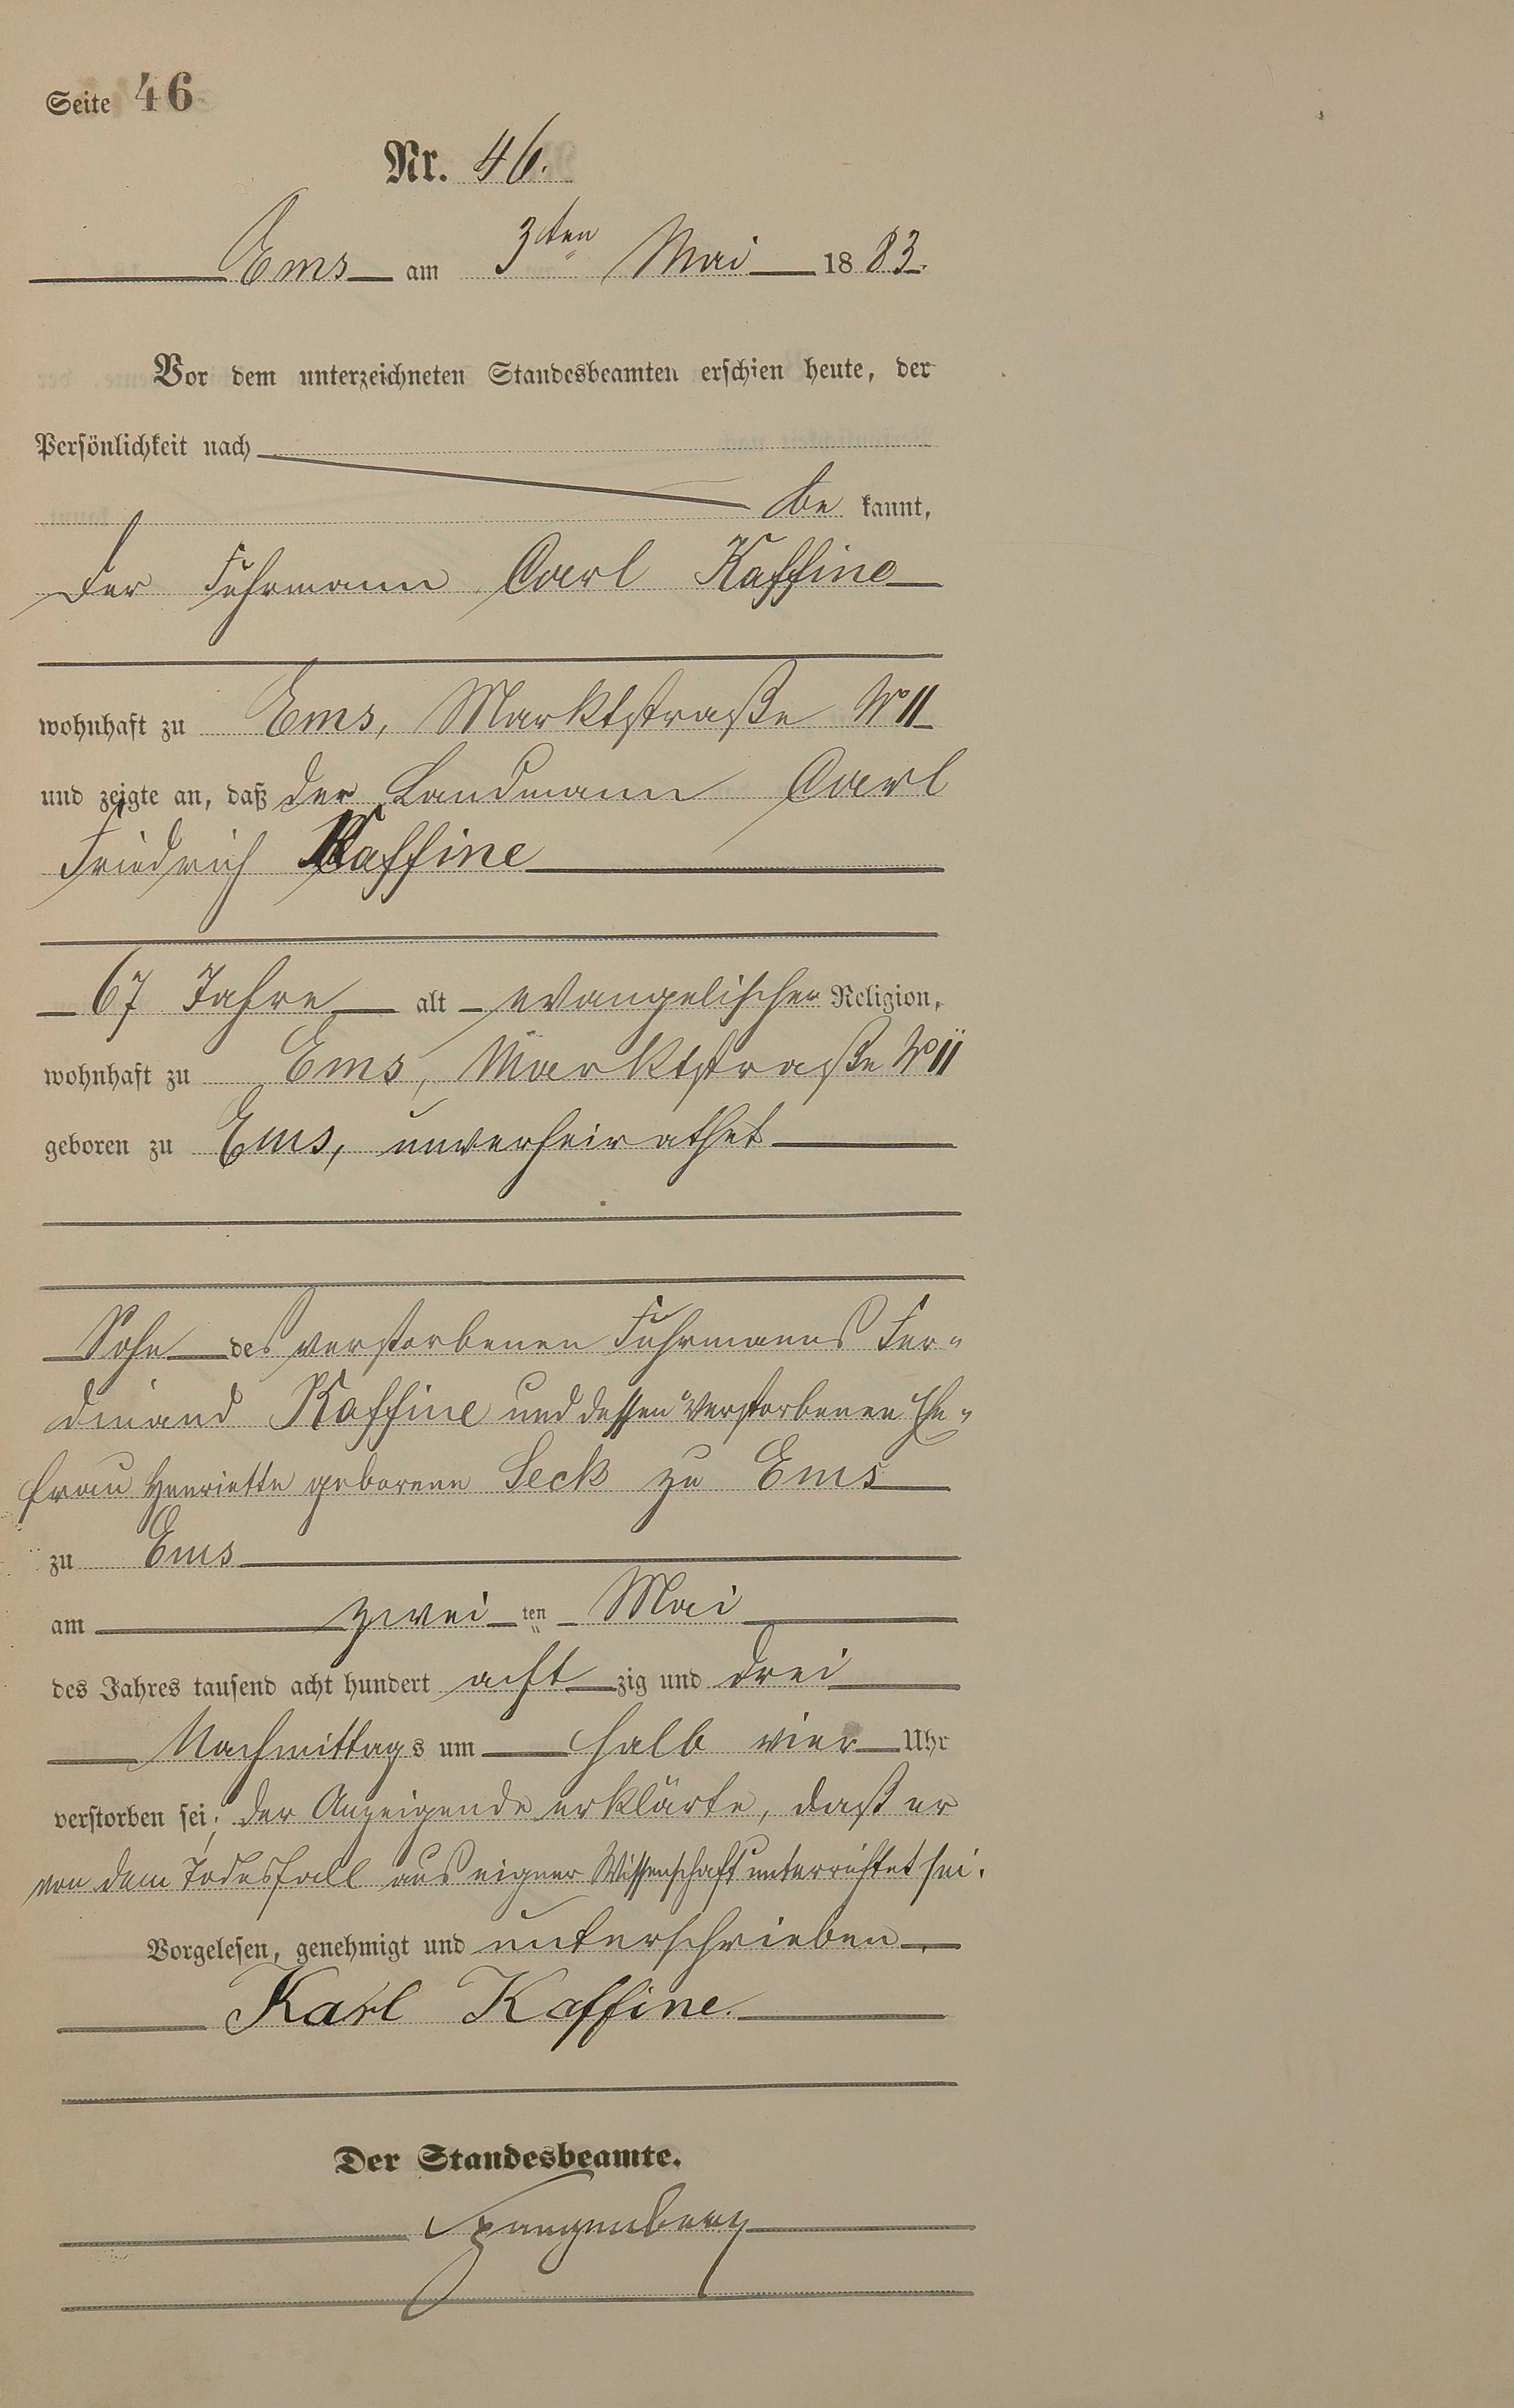 Seite 46
Nr. 46.
Ems am 3ten Mai 1883.
Vor dem unterzeichneten Standesbeamten erschien heute, der
Persönlichkeit nach
be kannt,
der Fuhrmann Carl Kaffine
wohnhaft zu Ems, Marktstraße No 11
und zeigte an, daß der Landmann Carl
Friedrich Kaffine
67 Jahre alt evangelischer Religion,
wohnhaft zu Ems, Marktstraße No 11
geboren zu Ems, unverheirathet
Sohn des verstorbenen Fuhrmanns Fer-
dinand Kaffine und dessen verstorbenen Ehe-
frau Henriette geborene Seck zu Ems
zu Ems
am zwei ten Mai
des Jahres tausend acht hundert acht zig und drei
Nachmittags um halb vier Uhr
verstorben sei; der Anzeigende erklärte, daß er
von dem Todesfall aus eigner Wissenschaft unterrichtet sei.
Vorgelesen, genehmigt und unterschrieben
Karl Kaffine.
Der Standesbeamte.
Spangenberg